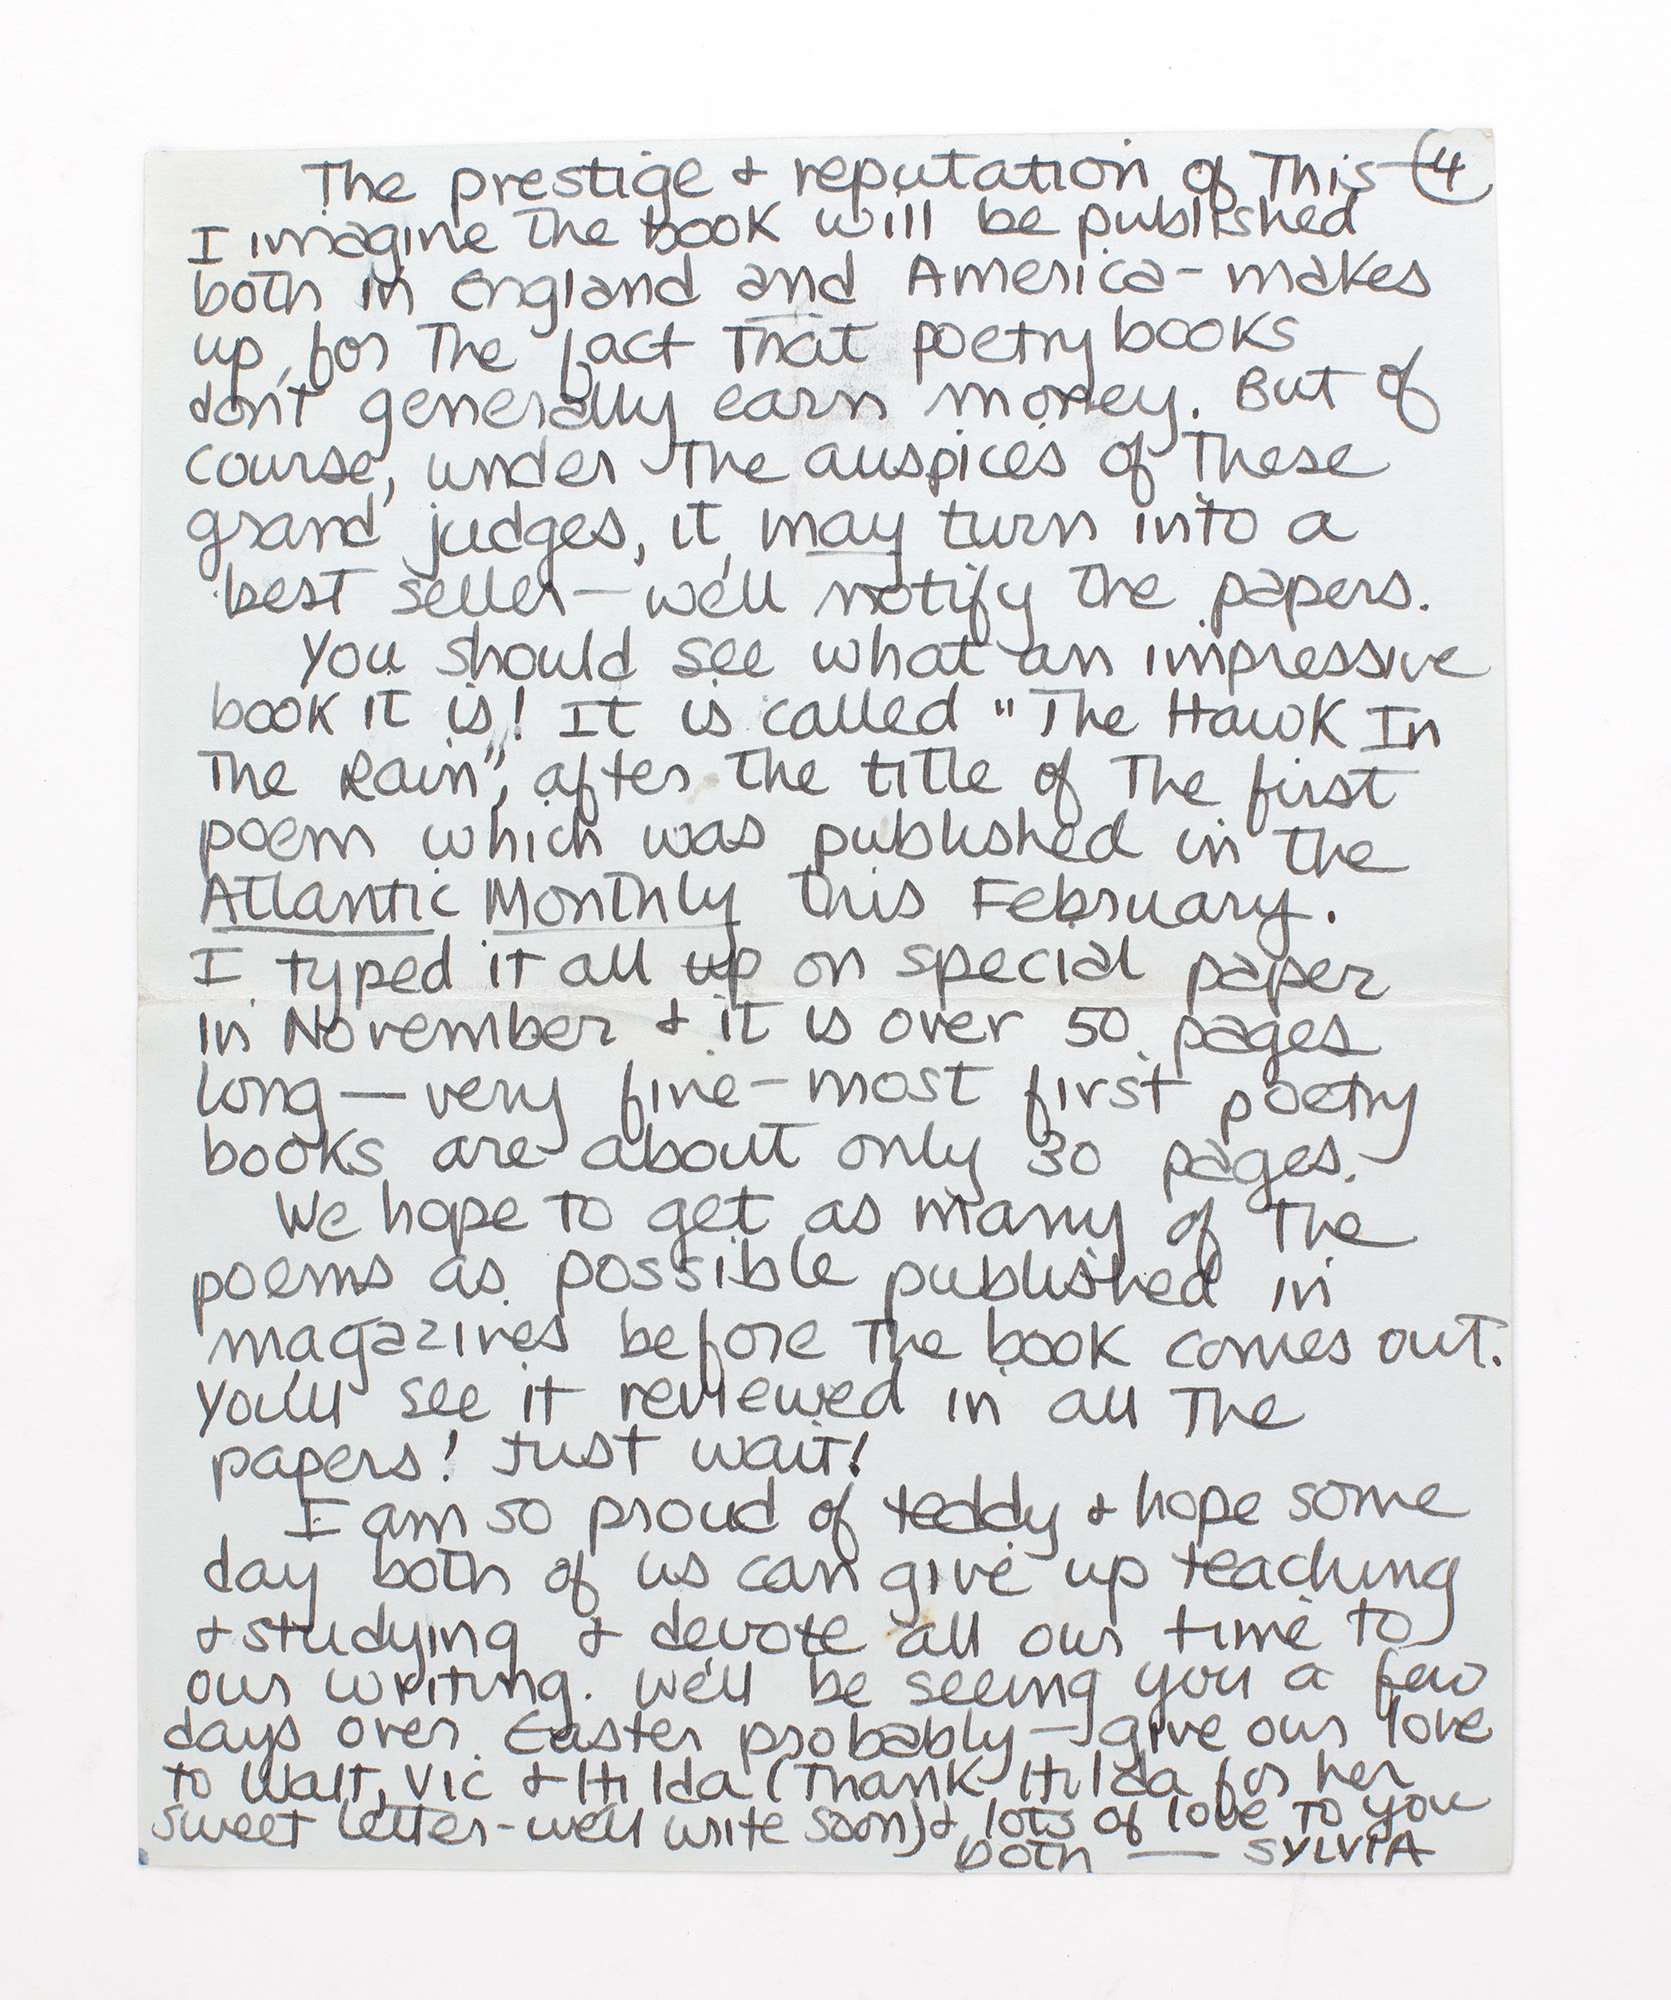 The prestige & reputation of This— 4
I imagine The book will be published
both in England and America - makes
up for The fact That poetry books
don't generally earn money. But of
course, under The auspices of These
grand judges, it may turn into a
best seller — we'll notify The papers.
You should see what an impressive
book it is! It is called "The Hawk In
The Rain", after The title of The first
poem which was published in The
Atlantic Monthly This February.
I typed it all up on special paper
in November & it is over 50 pages
long — very fine - most first poetry
books are about only 30 pages.
We hope to get as many of The
poems as possible published in
magazines before The book comes out.
You'll see it reviewed in all The
papers! Just wait!
I am so proud of teddy & hope some
day both of us can give up teaching
& studying & devote all our time to
our writing. We'll be seeing you a few
days over Easter probably — give our love
to Walt, Vic & Hilda (Thank Hilda for her
sweet letter - we'll write soon) & lots of love to you
both — SYLVIA